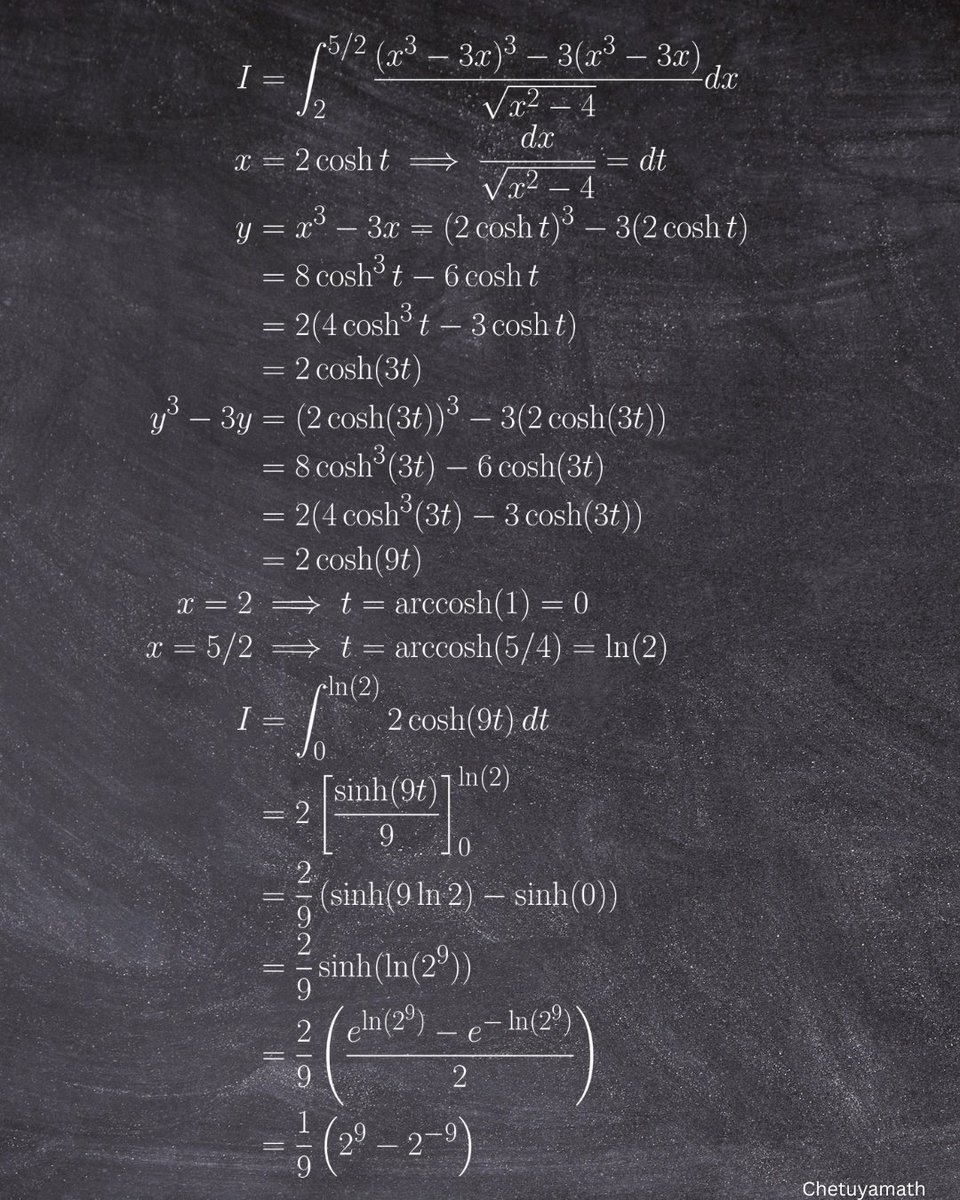 I = ∫_2^{5/2} \frac{(x^3 − 3x)^3 − 3(x^3 − 3x)}{\sqrt{x^2 − 4}} dx
x = 2 cosh t ⟹ \frac{dx}{\sqrt{x^2 − 4}} = dt
y = x^3 − 3x = (2 cosh t)^3 − 3(2 cosh t)
= 8 cosh^3 t − 6 cosh t
= 2(4 cosh^3 t − 3 cosh t)
= 2 cosh(3t)
y^3 − 3y = (2 cosh(3t))^3 − 3(2 cosh(3t))
= 8 cosh^3(3t) − 6 cosh(3t)
= 2(4 cosh^3(3t) − 3 cosh(3t))
= 2 cosh(9t)
x = 2 ⟹ t = arccosh(1) = 0
x = 5/2 ⟹ t = arccosh(5/4) = ln(2)
I = ∫_0^{ln(2)} 2 cosh(9t) dt
= 2 \left[ \frac{sinh(9t)}{9} \right]_0^{ln(2)}
= \frac{2}{9} (sinh(9 ln 2) − sinh(0))
= \frac{2}{9} sinh(ln(2^9))
= \frac{2}{9} \left( \frac{e^{ln(2^9)} − e^{− ln(2^9)}}{2} \right)
= \frac{1}{9} \left( 2^9 − 2^{−9} \right)
Chetuyamath